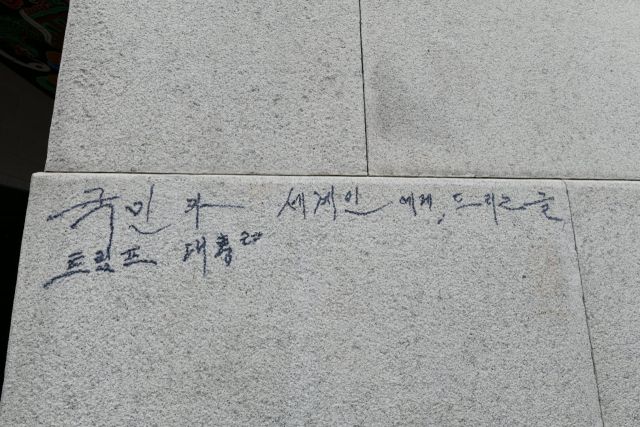 국민과 세계인에게, 드리는글
트럼프 대통령